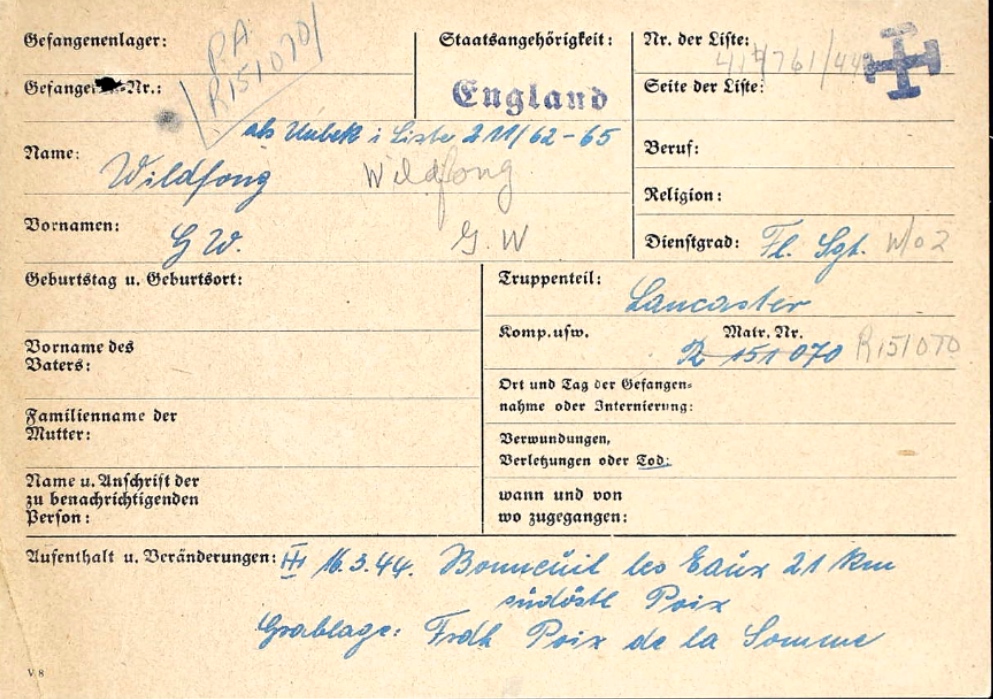 Gefangenenlager:
P.A.
R151070
Staatsangehörigkeit:
England
Nr. der Liste:
417761/44
Gefangenen-Nr.:
Seite der Liste:
als Unbek i Liste 211/62-65
Name:
Wildfong Wildfong
Beruf:
Religion:
Vornamen:
G W. G. W
Dienstgrad: Fl. Sgt. W/o 2
Geburtstag u. Geburtsort:
Truppenteil:
Lancaster
Komp. usw. Matr. Nr.
R 151 070 R151070
Vorname des
Vaters:
Ort und Tag der Gefangen=
nahme oder Internierung:
Familienname der
Mutter:
Verwundungen,
Verletzungen oder Tod:
Name u. Anschrift der
zu benachrichtigenden
Person:
wann und von
wo zugegangen:
Aufenthalt u. Veränderungen: 16.3.44. Bonneuil les Eaux 21 km
südöstl Poix
Grablage: Frdh Poix de la Somme
V/8